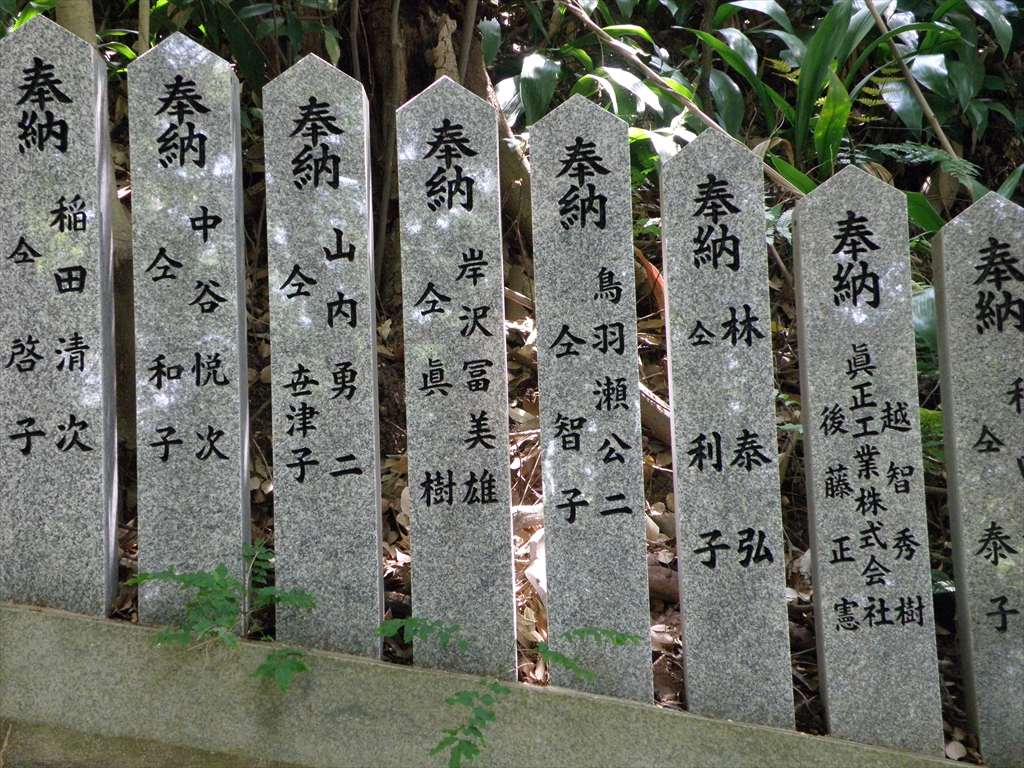 奉納
稲田清次
仝 啓子
奉納
中谷悦次
仝 和子
奉納
山内勇二
仝 世津子
奉納
岸沢冨美雄
仝 眞樹
奉納
鳥羽瀬公二
仝 智子
奉納
林 泰弘
仝 利子
奉納
越智秀樹
眞正工業株式会社
後藤正憲
奉納
仝 泰子